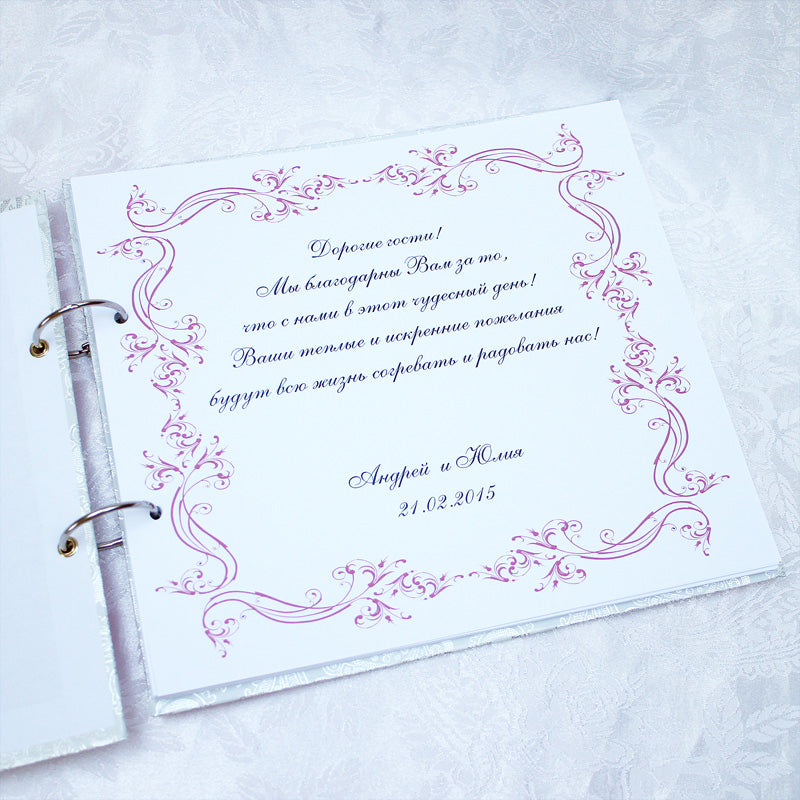 Дорогие гости!
Мы благодарны Вам за то,
что с нами в этот чудесный день!
Ваши теплые и искренние пожелания
будут всю жизнь согревать и радовать нас!
Андрей и Юлия
21.02.2015